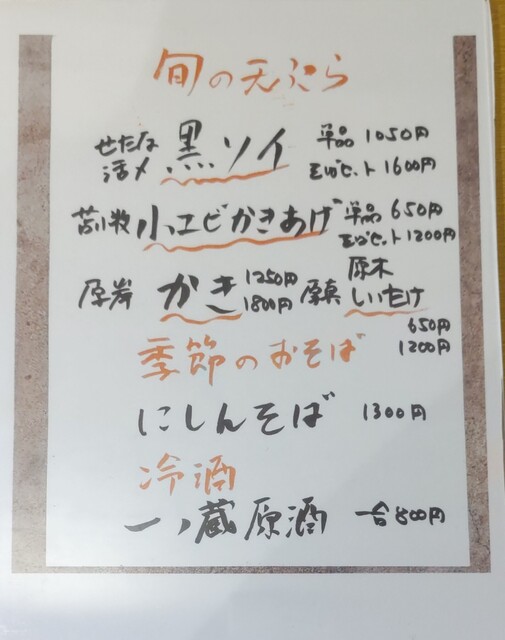 旬の天ぷら
せたな活〆 黒ソイ 単品 1050円
そばセット 1600円
苫小牧 小エビかきあげ 単品 650円
そばセット 1200円
厚岸 かき 1250円 1800円 厚真 原木しいたけ
650円
1200円
季節のおそば
にしんそば 1300円
冷酒
一ノ蔵原酒 一合 800円